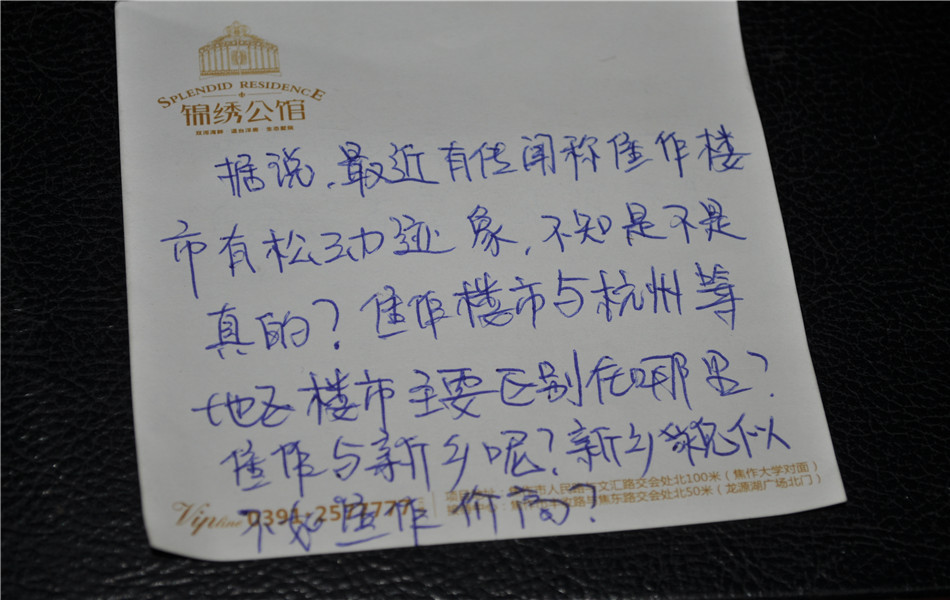 SPLENDID RESIDENCE
锦绣公馆
据说,最近有传闻称焦作楼
市有松动迹象,不知是不是
真的?焦作楼市与杭州等
地区楼市主要区别在哪里?
焦作与新乡呢?新乡貌似
不如焦作价高?
Vipline 0391-25
焦作市人民路与文汇路交会处北100米(焦作大学对面)
路与焦东路交会处北50米(龙源湖广场北门)